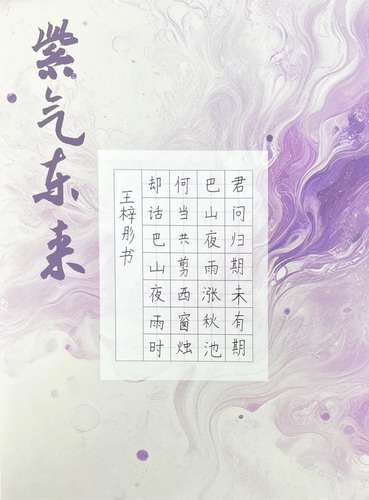 紫气东来
君问归期未有期
巴山夜雨涨秋池
何当共剪西窗烛
却话巴山夜雨时
王梓彤书